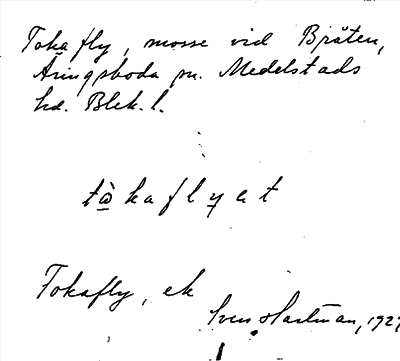 Tokafly, mosse vid Bråten,
Äringsboda sn. Medelstads
hd. Blek. l.
tὼkaflyat
Tokafly, ek
Sven Hartman, 192